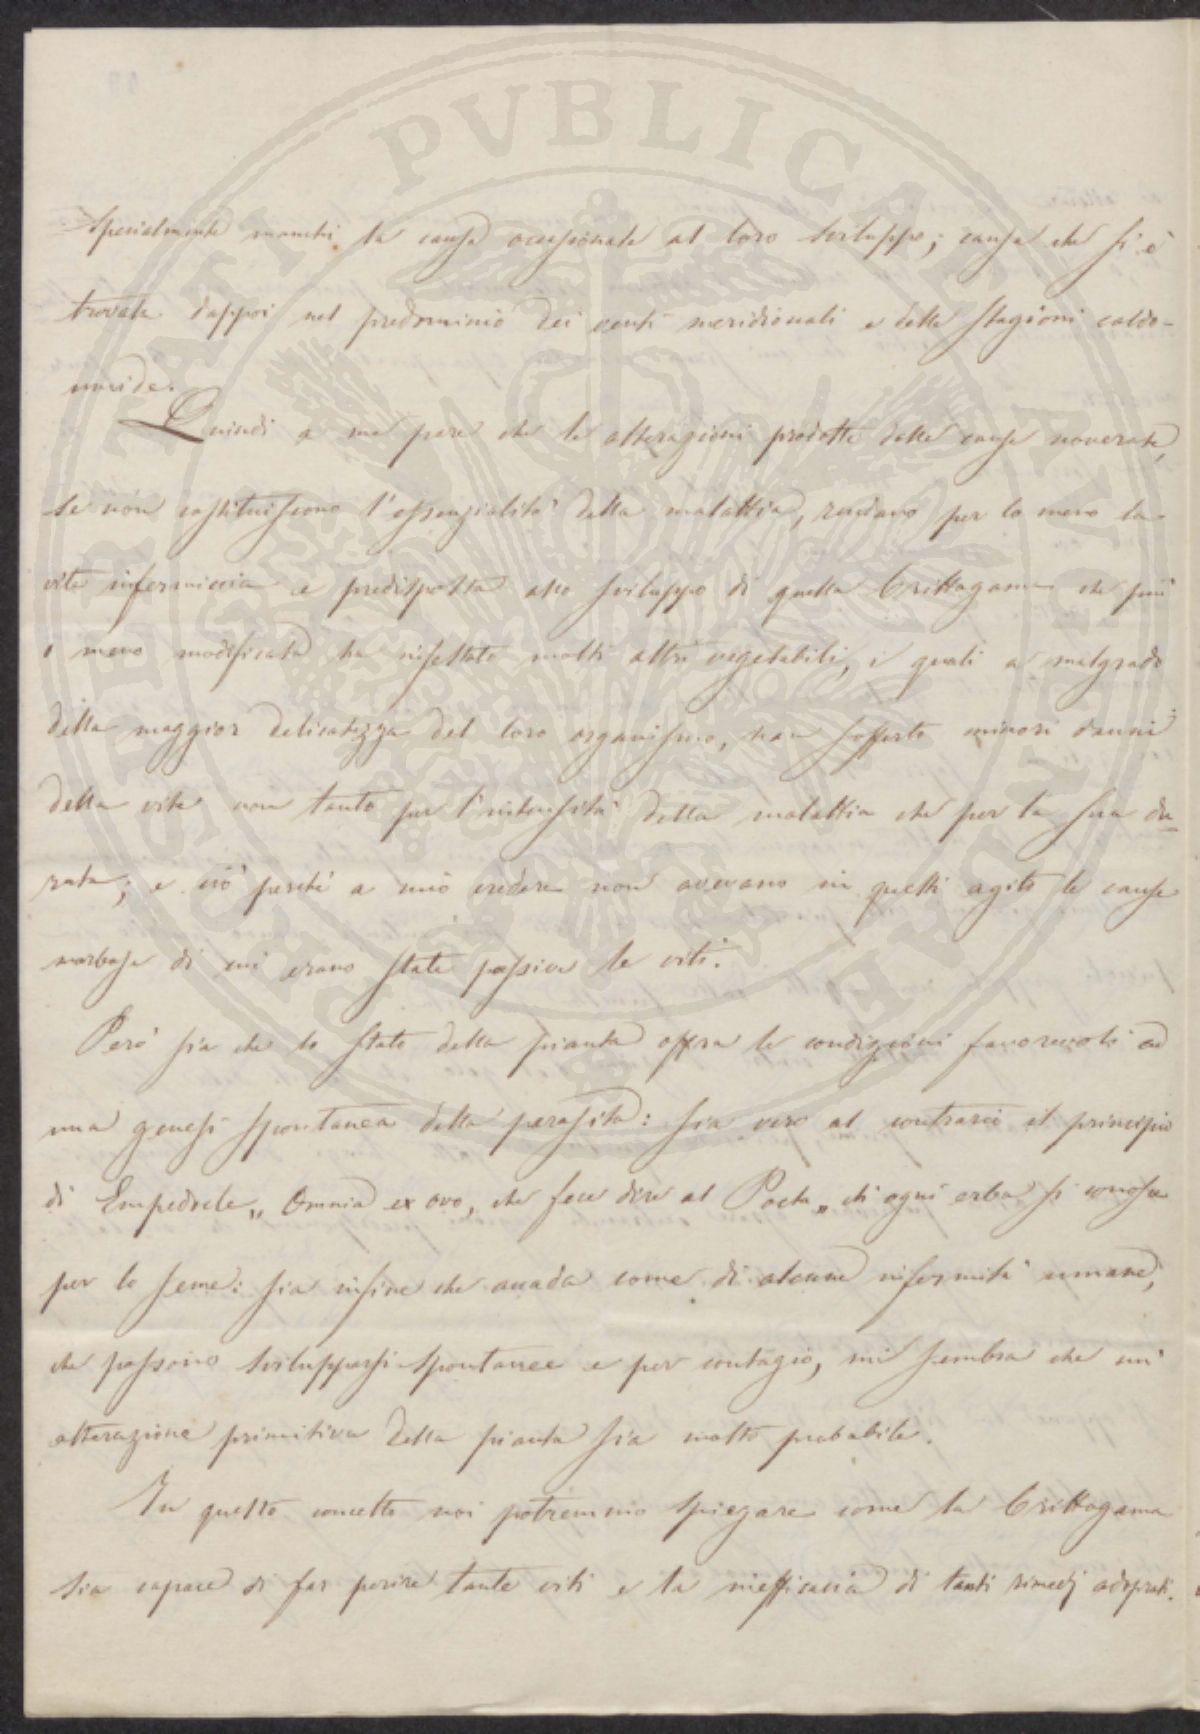 specialmente manchi la causa occasionale al loro sviluppo; causa che si è
trovata dappoi nel predominio dei venti meridionali e delle stagioni caldo-
umide.
Quindi a me pare che le alterazioni prodotte dalle cause noverate,
se non costituiscono l'essenzialità della malattia, rendano per lo meno la
vite infermiccia e predisposta allo sviluppo di quella Crittogama che più
o meno modificata ha infestato molti altri vegetabili, i quali a malgrado
della maggior delicatezza del loro organismo, han sofferto minori danni
della vite non tanto per l'intensità della malattia che per la sua du-
rata; e ciò perché a mio credere non avevano in quelli agito le cause
morbose di cui erano state passive le viti.
Però sia che lo stato della pianta offra le condizioni favorevoli ad
una genesi spontanea della parassita: sia vero al contrario il principio
di Empedocle „ Omnia ex ovo, che fece dire al Poeta „ ch'ogni erba si conosce
per lo seme: sia infine che accada come di alcune infermità umane,
che possono svilupparsi spontanee e per contagio, mi sembra che un'
alterazione primitiva della pianta sia molto probabile.
In questo concetto noi potremmo spiegare come la Crittogama
sia capace di far perire tante viti e la inefficacia di tanti rimedj adoprati.
PVBLICAE